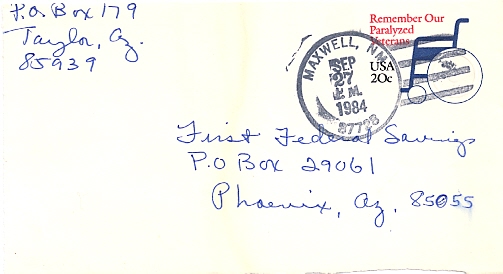 P.O. Box 179
Taylor, Az.
85939
Remember Our
Paralyzed
Veterans
USA
20c
MAXWELL, NM
SEP
27
P.M.
1984
87728
First Federal Savings
P.O Box 29061
Phoenix, Az. 85055